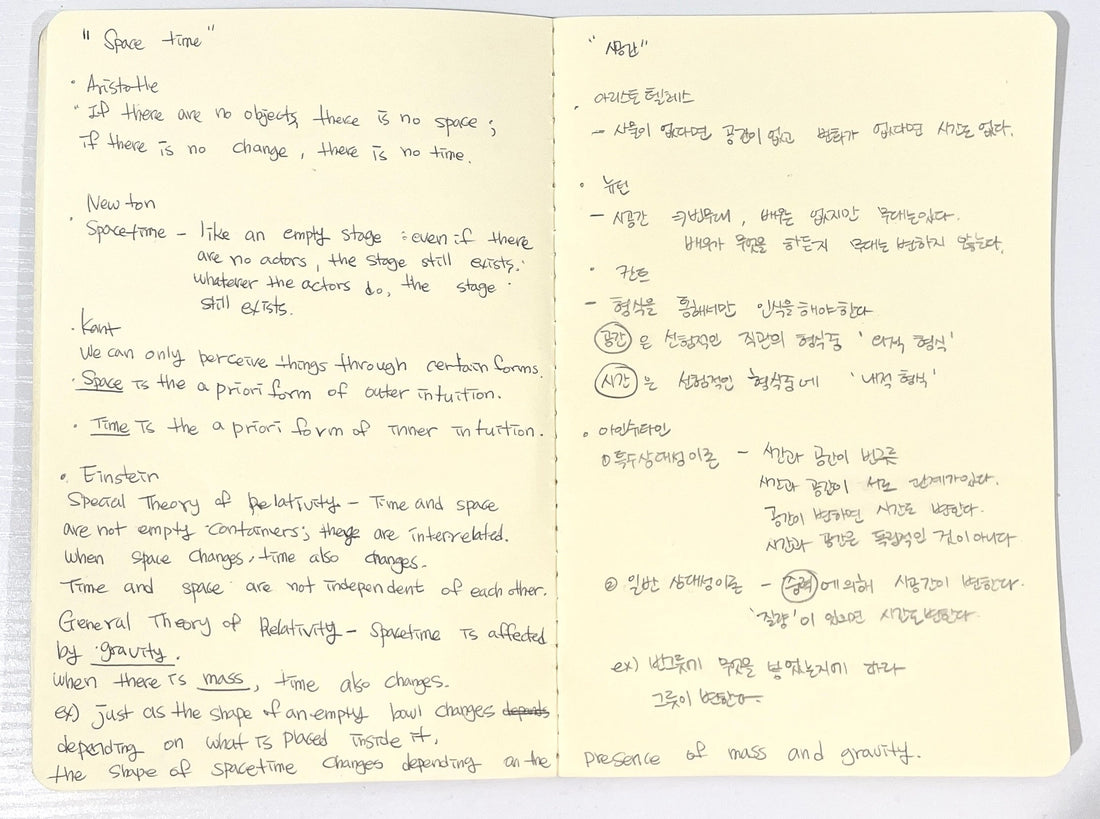 " Space time "
· Aristotle
" If there are no objects, there is no space ;
if there is no change, there is no time.
Newton
· Spacetime - like an empty stage : even if there
are no actors, the stage still exists.
whatever the actors do, the stage
still exists.
· Kant
We can only perceive things through certain forms.
· Space is the a priori form of outer intuition.
· Time is the a priori form of inner intuition.
· Einstein
Special Theory of Relativity - Time and space
are not empty containers; they are interrelated.
when space changes, time also changes.
Time and space are not independent of each other.
General Theory of Relativity - Spacetime is affected
by gravity.
when there is mass, time also changes.
ex) just as the shape of an empty bowl changes depends
depending on what is placed inside it,
the shape of spacetime changes depending on the
" 시공간 "
· 아리스토텔레스
- 사물이 없다면 공간이 없고 변화가 없다면 시간도 없다.
· 뉴턴
- 시공간 텅빈무대, 배우는 없지만 무대는있다.
배우가 무엇을 하든지 무대는 변하지 않는다.
· 칸트
- 형식을 통해서만 인식을해야한다
공간은 선험적인 직관의 형식중 '외적 형식'
시간은 선험적인 형식중에 '내적 형식'
· 아인슈타인
① 특수상대성이론 - 시간과 공간이 빈그릇
시간과 공간이 서로 관계가있다.
공간이 변하면 시간도 변한다.
시간과 공간은 독립적인 것이 아니다
② 일반 상대성이론 - 중력에의해 시공간이 변한다.
'질량'이 있으면 시간도변한다.
ex) 빈그릇에 무엇을 넣었는지에 따라
그릇이 변한다.
presence of mass and gravity.